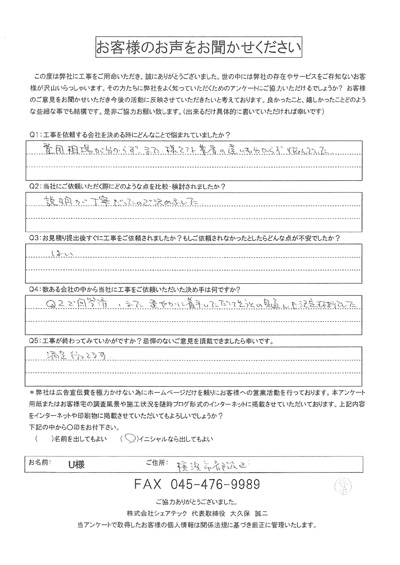 お客様のお声をお聞かせください
この度は弊社に工事をご用命いただき、誠にありがとうございました。世の中には弊社の存在やサービスをご存知ないお客
様が沢山いらっしゃいます。その方たちに弊社をよく知っていただくためのアンケートにご協力いただけるでしょうか? お客様
のご意見をお聞かせいただき今後の活動に反映させていただきたいと考えております。良かったこと、嬉しかったことどのよう
な些細な事でも結構です。是非ご協力お願い致します。(出来るだけ具体的に書いていただければ幸いです)
Q1:工事を依頼する会社を決める時にどんなことで悩まれていましたか?
費用相場が分からず、また様々な業者の違いも分からず悩んでいた
Q2:当社にご依頼いただく際にどのような点を比較・検討されましたか?
説明が丁寧だったので決めました
Q3:お見積り提出後すぐに工事をご依頼されましたか?もしご依頼されなかったとしたらどんな点が不安でしたか?
はい
Q4:数ある会社の中から当社に工事をご依頼いただいた決め手は何ですか?
Q2で回答済、また速やかに着手していただけそうとの
Q5:工事が終わってみていかがですか?忌憚のないご意見を頂戴できましたら幸いです。
満足行ってます
*弊社は広告宣伝費を極力かけない為にホームページだけを頼りにお客様への営業活動を行っております。本アンケート
用紙またはお客様宅の調査風景や施工状況を随時ブログ形式のインターネットに掲載させていただいております。上記内容
をインターネットや印刷物に掲載させていただいてもよろしいでしょうか?
下記の中から〇印をお付下さい。
( )名前を出してもよい (〇)イニシャルなら出してもよい
お名前: U様 ご住所: 横浜市都筑区
FAX 045-476-9989
ご協力ありがとうございました。
株式会社シェアテック 代表取締役 大久保 誠二
当アンケートで取得したお客様の個人情報は関係法規に基づき厳正に管理いたします。